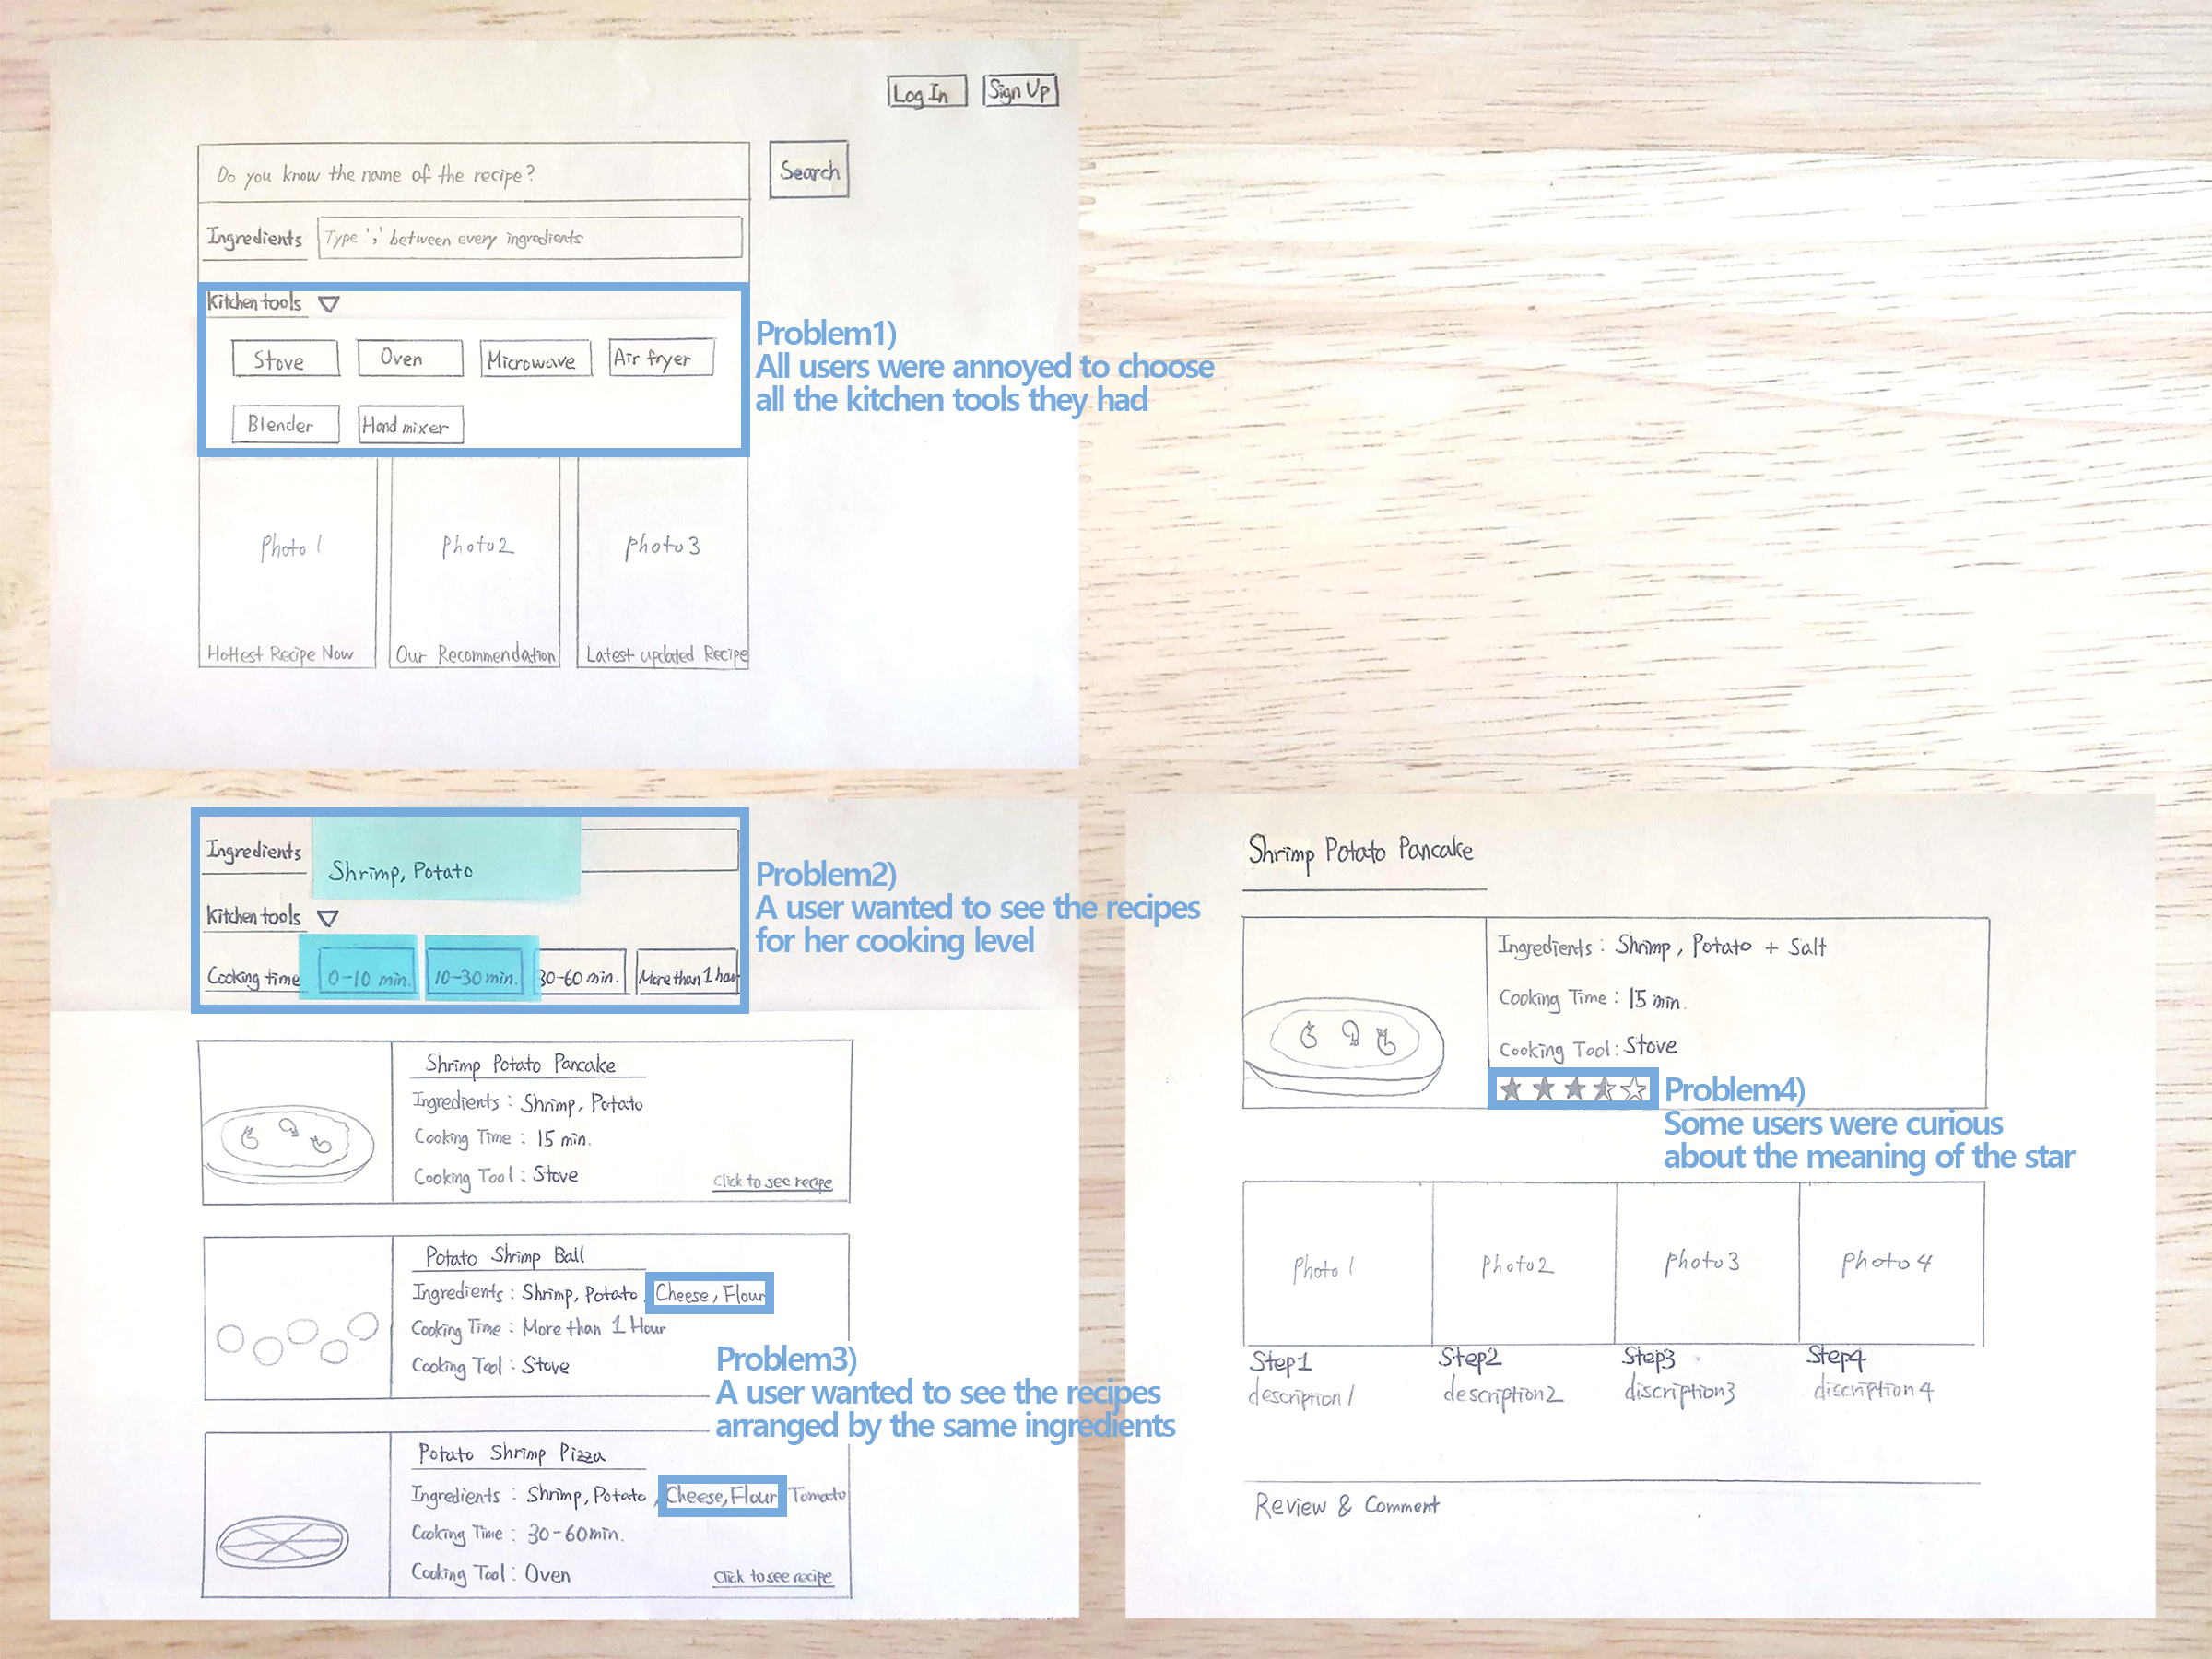 Log In Sign Up
Do you know the name of the recipe?
Search
Ingredients Type ';' between every ingredients
Kitchen tools
Stove Oven Microwave Air fryer
Blender Hand mixer
Problem1)
All users were annoyed to choose
all the kitchen tools they had
Photo 1 Photo2 photo3
Hottest Recipe Now Our Recommendation Latest updated Recipe
Ingredients Shrimp, Potato
Kitchen tools
Cooking time 0-10 min. 10-30 min. 30-60 min. More than 1 hour
Problem2)
A user wanted to see the recipes
for her cooking level
Shrimp Potato Pancake
Ingredients : Shrimp, Potato
Cooking Time : 15 min.
Cooking Tool : Stove
Click to see recipe
Potato Shrimp Ball
Ingredients : Shrimp, Potato, Cheese, Flour
Cooking Time : More than 1 Hour
Cooking Tool : Stove
Problem3)
A user wanted to see the recipes
arranged by the same ingredients
Potato Shrimp Pizza
Ingredients : Shrimp, Potato, Cheese, Flour Tomato
Cooking Time : 30-60min.
Cooking Tool : Oven
Click to see recipe
Shrimp Potato Pancake
Ingredients : Shrimp, Potato + Salt
Cooking Time : 15 min.
Cooking Tool : Stove
Problem4)
Some users were curious
about the meaning of the star
Photo 1 Photo2 photo3 photo 4
Step1 Step2 Step3 Step4
description1 description2 discription3 discription4
Review & Comment